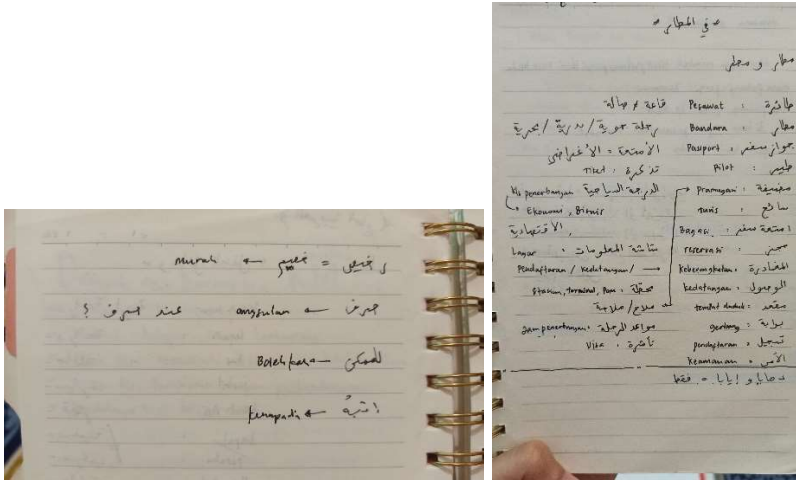 رخيص = خصم ← murah
صرف ← angsulan عند صرف ؟
للممكن ← Boleh kah
انتبهْ ←
* في المطار *
مطار و محلي
طائرة : Pesawat قاعة ≠ صالة
مطار : Bandara رحلة جوية / برية / بحرية
جواز سفر : Pasport الأمتعة = الأغراض
طيار : Pilot تذكرة : Tiket
مضيفة : Pramugari الدرجة السياحية Kls penerbangan
سائح : turis Ekonomi, Bisnis
امتعة سفر : Bagasi الاقتصادية
حجز : reservasi شاشة المعلومات : Layar
المغادرة : keberangkatan Pendaftaran / kedatangan / →
الوصول : kedatangan محطة : Stasiun, terminal,
مقعد : tempat duduk ملاح / ملاحة
بوابة : gerbang مواعد الرحلة : Jam penerbangan
تسجيل : pendaftaran تأشيرة : Visa
الأمن : keamanan
ذهابا و إيابا = فقط